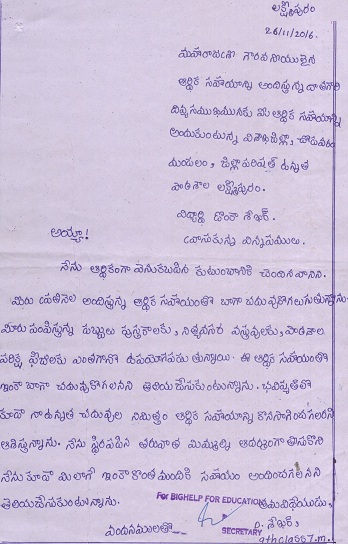 లక్ష్మీపురం
26/11/2016.
మహారాజశ్రీ గౌరవనీయులైన
ఆర్థిక సహాయాన్ని అందిస్తున్న దాతగారి
దివ్యసముఖమునకు మీ ఆర్థిక సహాయాన్ని
అందుకుంటున్న విశాఖజిల్లా, చోడవరం
మండలం, జిల్లా పరిషత్ ఉన్నత
పాఠశాల లక్ష్మీపురం.
విద్యార్థి శేఖర్.
వ్రాసుకున్న విన్నపములు.
అయ్యా!
నేను ఆర్థికంగా వెనుకబడిన కుటుంబానికి చెందినవానిని.
మీరు ప్రతినెల అందిస్తున్న ఆర్థిక సహాయంతో బాగా చదువుకోగలుగుతున్నాను.
మీరు పంపిస్తున్న డబ్బులు పుస్తకాలకు, నిత్యవసర వస్తువులకు, పాఠశాల
పరీక్ష ఫీజులకు ఎంతగానో ఉపయోగపడుతున్నాయి. ఈ ఆర్థిక సహాయంతో
ఇంకా బాగా చదువుకోగలనని తెలియచేసుకుంటున్నాను. భవిష్యత్తులో
కూడా నా ఉన్నత చదువుల నిమిత్తం ఆర్థిక సహాయాన్ని కొనసాగించగలరని
ఆశిస్తున్నాను. నేను స్థిరపడిన తరువాత మిమ్మల్ని ఆదర్శంగా తీసుకొని
నేను కూడా మీలాగే ఇంకా కొంత మందికి సహాయం అందించగలనని
తెలియచేసుకుంటున్నాను.
For BIGHELP FOR EDUCATION
ఇట్లు మీ విధేయుడు,
వందనములతో
SECRETARY
శేఖర్,
9th class 7.m.